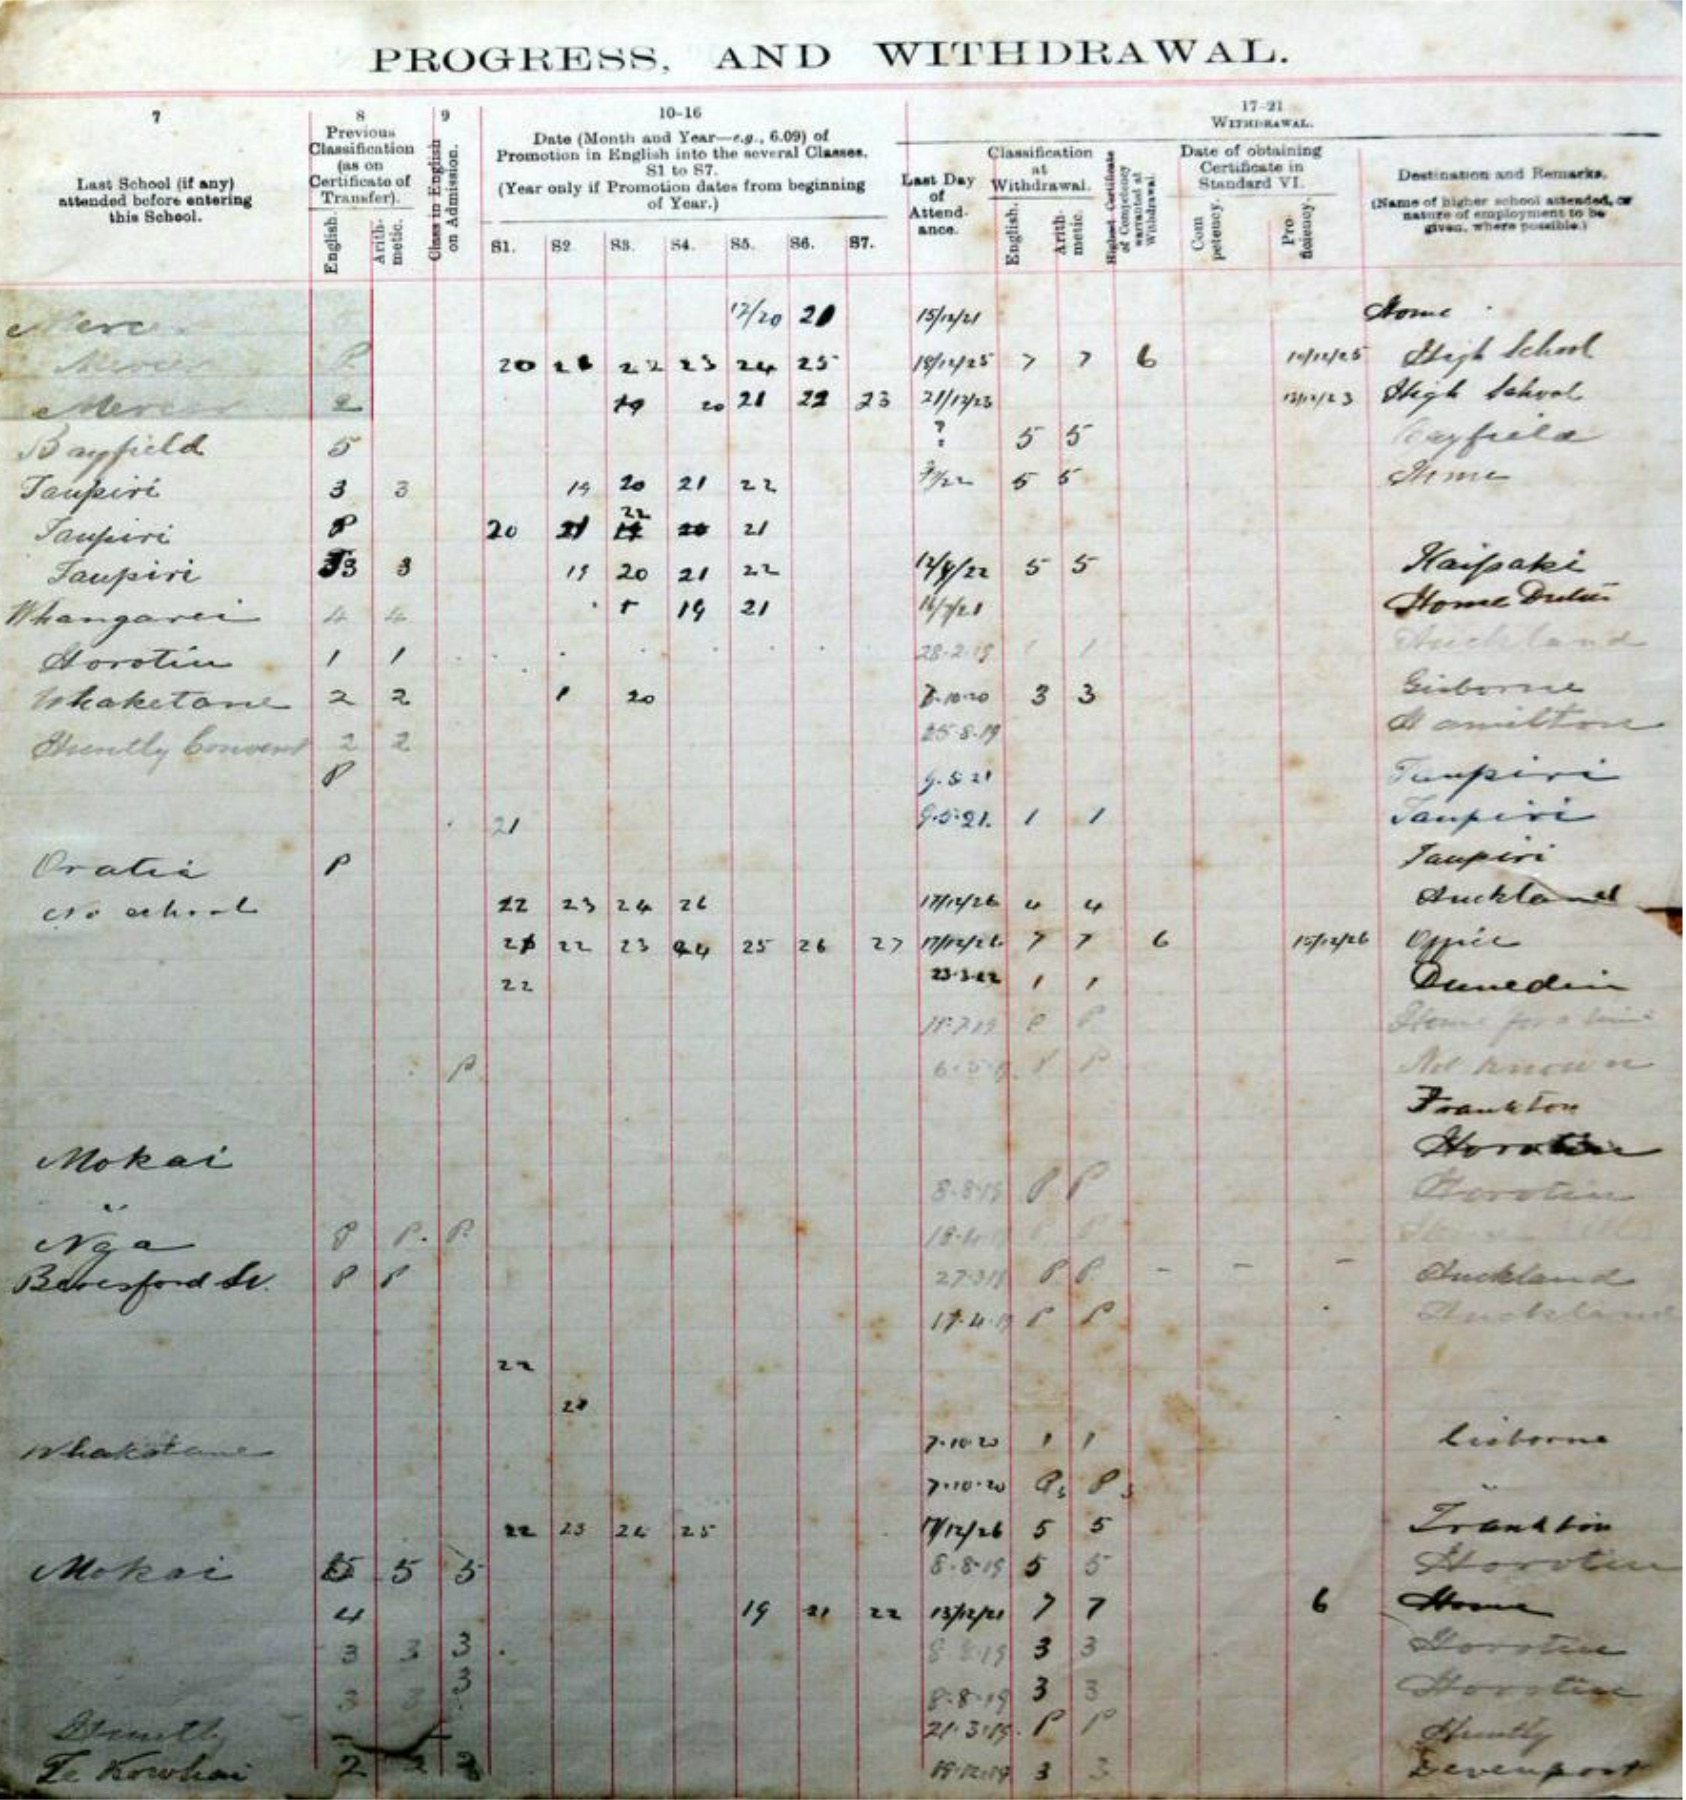 PROGRESS, AND WITHDRAWAL.
7 8 9 10-16 17-21
Last School (if any) attended before entering this School.
Previous Classification (as on Certificate of Transfer).
English. Arith- metic.
Class in English on Admission.
Date (Month and Year—e.g., 6.09) of Promotion in English into the several Classes. S1 to S7.
(Year only if Promotion dates from beginning of Year.)
S1. S2. S3. S4. S5. S6. S7.
WITHDRAWAL.
Last Day of Attend- ance.
Classification at Withdrawal.
English. Arith- metic.
Highest Certificate of Competency warranted at Withdrawal.
Date of obtaining Certificate in Standard VI.
Com petency. Pro- ficiency.
Destination and Remarks.
(Name of higher school attended, or nature of employment to be given, where possible.)
12/20 21 15/12/21 Home
20 21 22 23 24 25 18/12/25 7 7 6 High School
2 19 20 21 22 23 21/12/23 High School
Bayfield 5 ? 5 5 Bayfield
Taupiri 3 3 19 20 21 22 5 5 Home
Taupiri P 20 21 22 21
Taupiri 3 3 19 20 21 22 5 5 Kaipaki
Whangarei 4 4 19 21 Home Duties
Horotiu 1 1 28.2.19 1 1 Auckland
Whaketane 2 2 1 20 10.20 3 3 Gisborne
Huntly Convent 2 2 25.8.19 Hamilton
P 9.5.21 Taupiri
21 9.5.21. 1 1 Taupiri
Oratii P Taupiri
No school 22 23 24 26 17/12/26 4 4 Auckland
21 22 23 24 25 26 27 17/12/26 7 7 6 15/12/26 Office
22 23.3.22 1 1 Dunedin
18.7.19 P P Home for a time
P P P Not known
Frankton
Mokai Horotiu
" 8.8.19 P P Horotiu
Nga P P. P.
Beresford St. P P 27.3.19 P P. - - - Auckland
17.4.19 P P Auckland
22
Whakatane 7.10.20 1 1 Gisborne
7.10.20 P3 P3 "
22 23 24 25 17/12/26 5 5 Frankton
Mokai 5 5 5 8.8.19 5 5 Horotiu
4 19 21 22 13/12/21 7 7 6 Home
3 3 3 8.8.19 3 3 Horotiu
3 3 3 8.8.19 3 3 Horotiu
Huntly 21.3.19. P P Huntly
Te Kowhai 2 2 19.12.19 3 3 Devenport